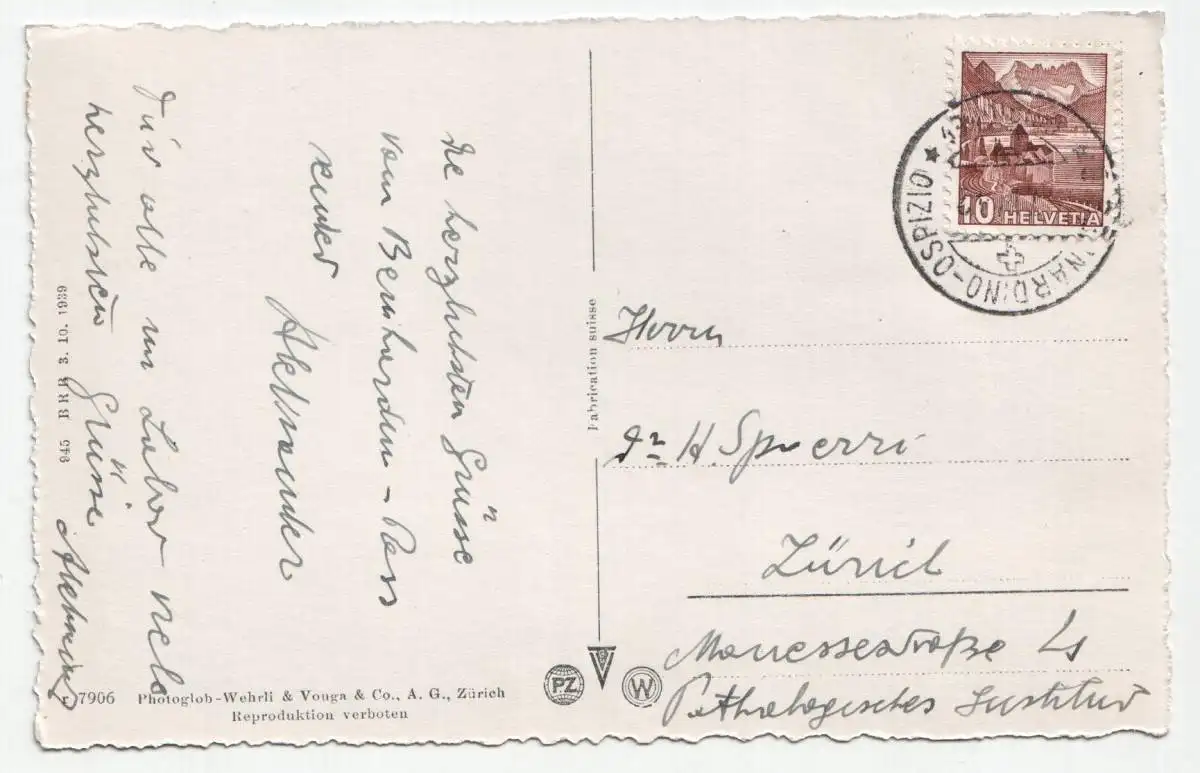 Die herzlichsten Grüsse
vom Bernhardin-Pass
sendet
Für alle im Labor
herzlichsten Grüsse
945 BRB 3. 10. 1939
7906 Photoglob-Wehrli & Vouga & Co., A. G., Zürich
Reproduktion verboten
Fabrication suisse
PZ
W
10 HELVETIA
NARDINO-OSPIZIO
Herrn
Dr H. Spoerri
Zürich
Manessestraße
Pathologisches Institut